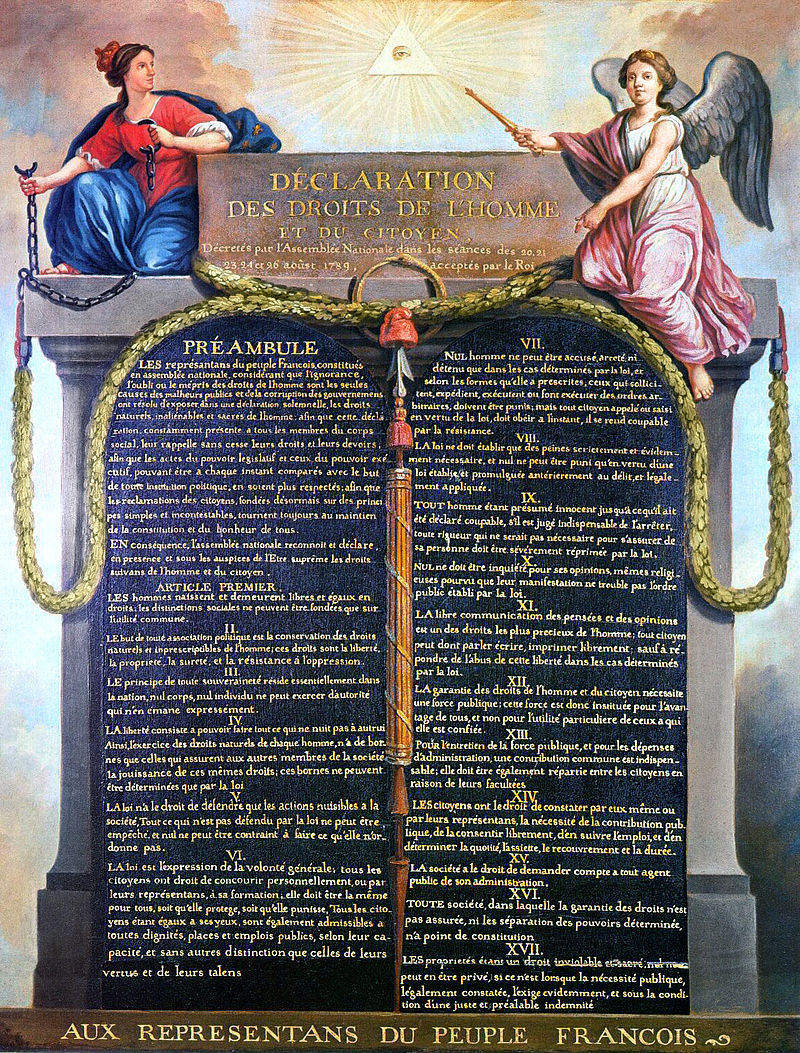 DÉCLARATION
DES DROITS DE L'HOMME
ET DU CITOYEN,
Décretés par l'Assemblée Nationale dans les séances des 20, 21
23, 24 et 26 aoûst 1789, acceptés par le Roi
PRÉAMBULE
LES représentans du peuple Francois, constitués
en assemblée nationale, considérant que l'ignorance,
l'oubli ou le mépris des droits de l'homme sont les seules
causes des malheurs publics et de la corruption des gouvernemens
ont résolu d'exposer dans une déclaration solemnelle, les droits
naturels, inaliénables et sacrés de l'homme; afin que cette décla
ration, constamment présente a tous les membres du corps
social, leur rappelle sans cesse leurs droits et leurs devoirs;
afin que les actes du pouvoir legislatif et ceux du pouvoir exé
cutif, pouvant être a chaque instant comparés avec le but
de toute institution politique, en soient plus respectés; afin que
les reclamations des citoyens, fondées désormais sur des princi
pes simples et incontestables, tournent toujours au maintien
de la constitution et du bonheur de tous.
EN conséquence, l'assemblée nationale reconnoit et déclare,
en presence et sous les auspices de l'Etre suprême les droits
suivans de l'homme et du citoyen.
ARTICLE PREMIER.
LES hommes naissent et demeurent libres et égaux en
droits; les distinctions sociales ne peuvent être fondées que sur
l'utilité commune.
II.
LE but de toute association politique est la conservation des droits
naturels et inprescriptibles de l'homme; ces droits sont la liberté,
la propriete, la sureté, et la résistance à l'oppression.
III.
LE principe de toute souveraineté réside essentiellement dans
la nation, nul corps, nul individu ne peut exercer d'autorité
qui n'en emane expressément.
IV.
LA liberté consiste a pouvoir faire tout ce qui ne nuit pas à autrui
Ainsi, l'exercice des droits naturels de chaque homme, n'a de bor
nes que celles qui assurent aux autres membres de la société
la jouissance de ces mêmes droits; ces bornes ne peuvent
être déterminées que par la loi
V.
LA loi n'a le droit de défendre que les actions nuisibles a la
société, Tout ce qui n'est pas défendu par la loi ne peut être
empêché, et nul ne peut être contraint à faire ce qu'elle n'or-
donne pas.
VI.
LA loi est l'expression de la volonté générale; tous les
citoyens ont droit de concourir personnellement, ou par
leurs représentans, à sa formation; elle doit être la même
pour tous, soit qu'elle protege, soit qu'elle punisse, Tous les cito
yens étant égaux a ses yeux, sont également admissibles à
toutes dignités, places et emplois publics, selon leur ca-
pacité, et sans autres distinction que celles de leurs
vertus et de leurs talens
VII.
NUL homme ne peut être accusé, arreté, ni
détenu que dans les cas déterminés par la loi, et
selon les formes qu'elle a prescrites, ceux qui sollici-
tent, expédient, exécutent ou font exécuter des ordres ar-
bitraires, doivent être punis; mais tout citoyen appelé ou saisi
en vertu de la loi, doit obéir a l'instant, il se rend coupable
par la résistance.
VIII.
LA loi ne doit établir que des peines strictement et évidem-
ment nécessaire, et nul ne peut être puni qu'en vertu d'une
loi établie, et promulguée antérierement au délit, et légale-
ment appliquée.
IX.
TOUT homme étant présumé innocent jusqu'a ce qu'il ait
été déclaré coupable, s'il est jugé indispensable de l'arrêter,
toute rigueur qui ne serait pas nécessaire pour s'assurer de
sa personne doit être sévèrement réprimée par la loi.
X.
NUL ne doit être inquiété pour ses opinions, mêmes religi-
euses pourvu que leur manifestation ne trouble pas l'ordre
public établi par la loi.
XI.
LA libre communication des pensées et des opinions
est un des droits les plus precieux de l'homme; tout citoyen
peut dont parler écrire, imprimer librement; sauf à ré-
pondre de l'abus de cette liberté dans les cas déterminés
par la loi.
XII.
LA garantie des droits de l'homme et du citoyen nécessite
une force publique; cette force est donc instituée pour l'avan-
tage de tous, et non pour l'utilité particuliere de ceux a qui
elle est confiée.
XIII.
POUR l'entretien de la force publique, et pour les dépenses
d'administration, une contribution commune est indispen-
sable; elle doit être également répartie entre les citoyens en
raison de leurs facultées
XIV.
LES citoyens ont le droit de constater par eux même ou
par leurs représentans, la nécessité de la contribution pub-
lique, de la consentir librement, d'en suivre l'emploi, et d'en
déterminer la quotité, l'assiette, le recouvrement et la durée.
XV.
LA société a le droit de demander compte a tout agent
public de son administration.
XVI.
TOUTE société, dans laquelle la garantie des droits n'est
pas assurée, ni les séparation des pouvoirs déterminée,
n'a point de constitution
XVII.
LES proprietés étant un droit inviolable et sacré, nul ne
peut en être privé; si ce n'est lorsque la nécessité publique,
légalement constatée, l'exige evidemment, et sous la condi-
tion d'une juste et préalable indemnité
AUX REPRESENTANS DU PEUPLE FRANCOIS